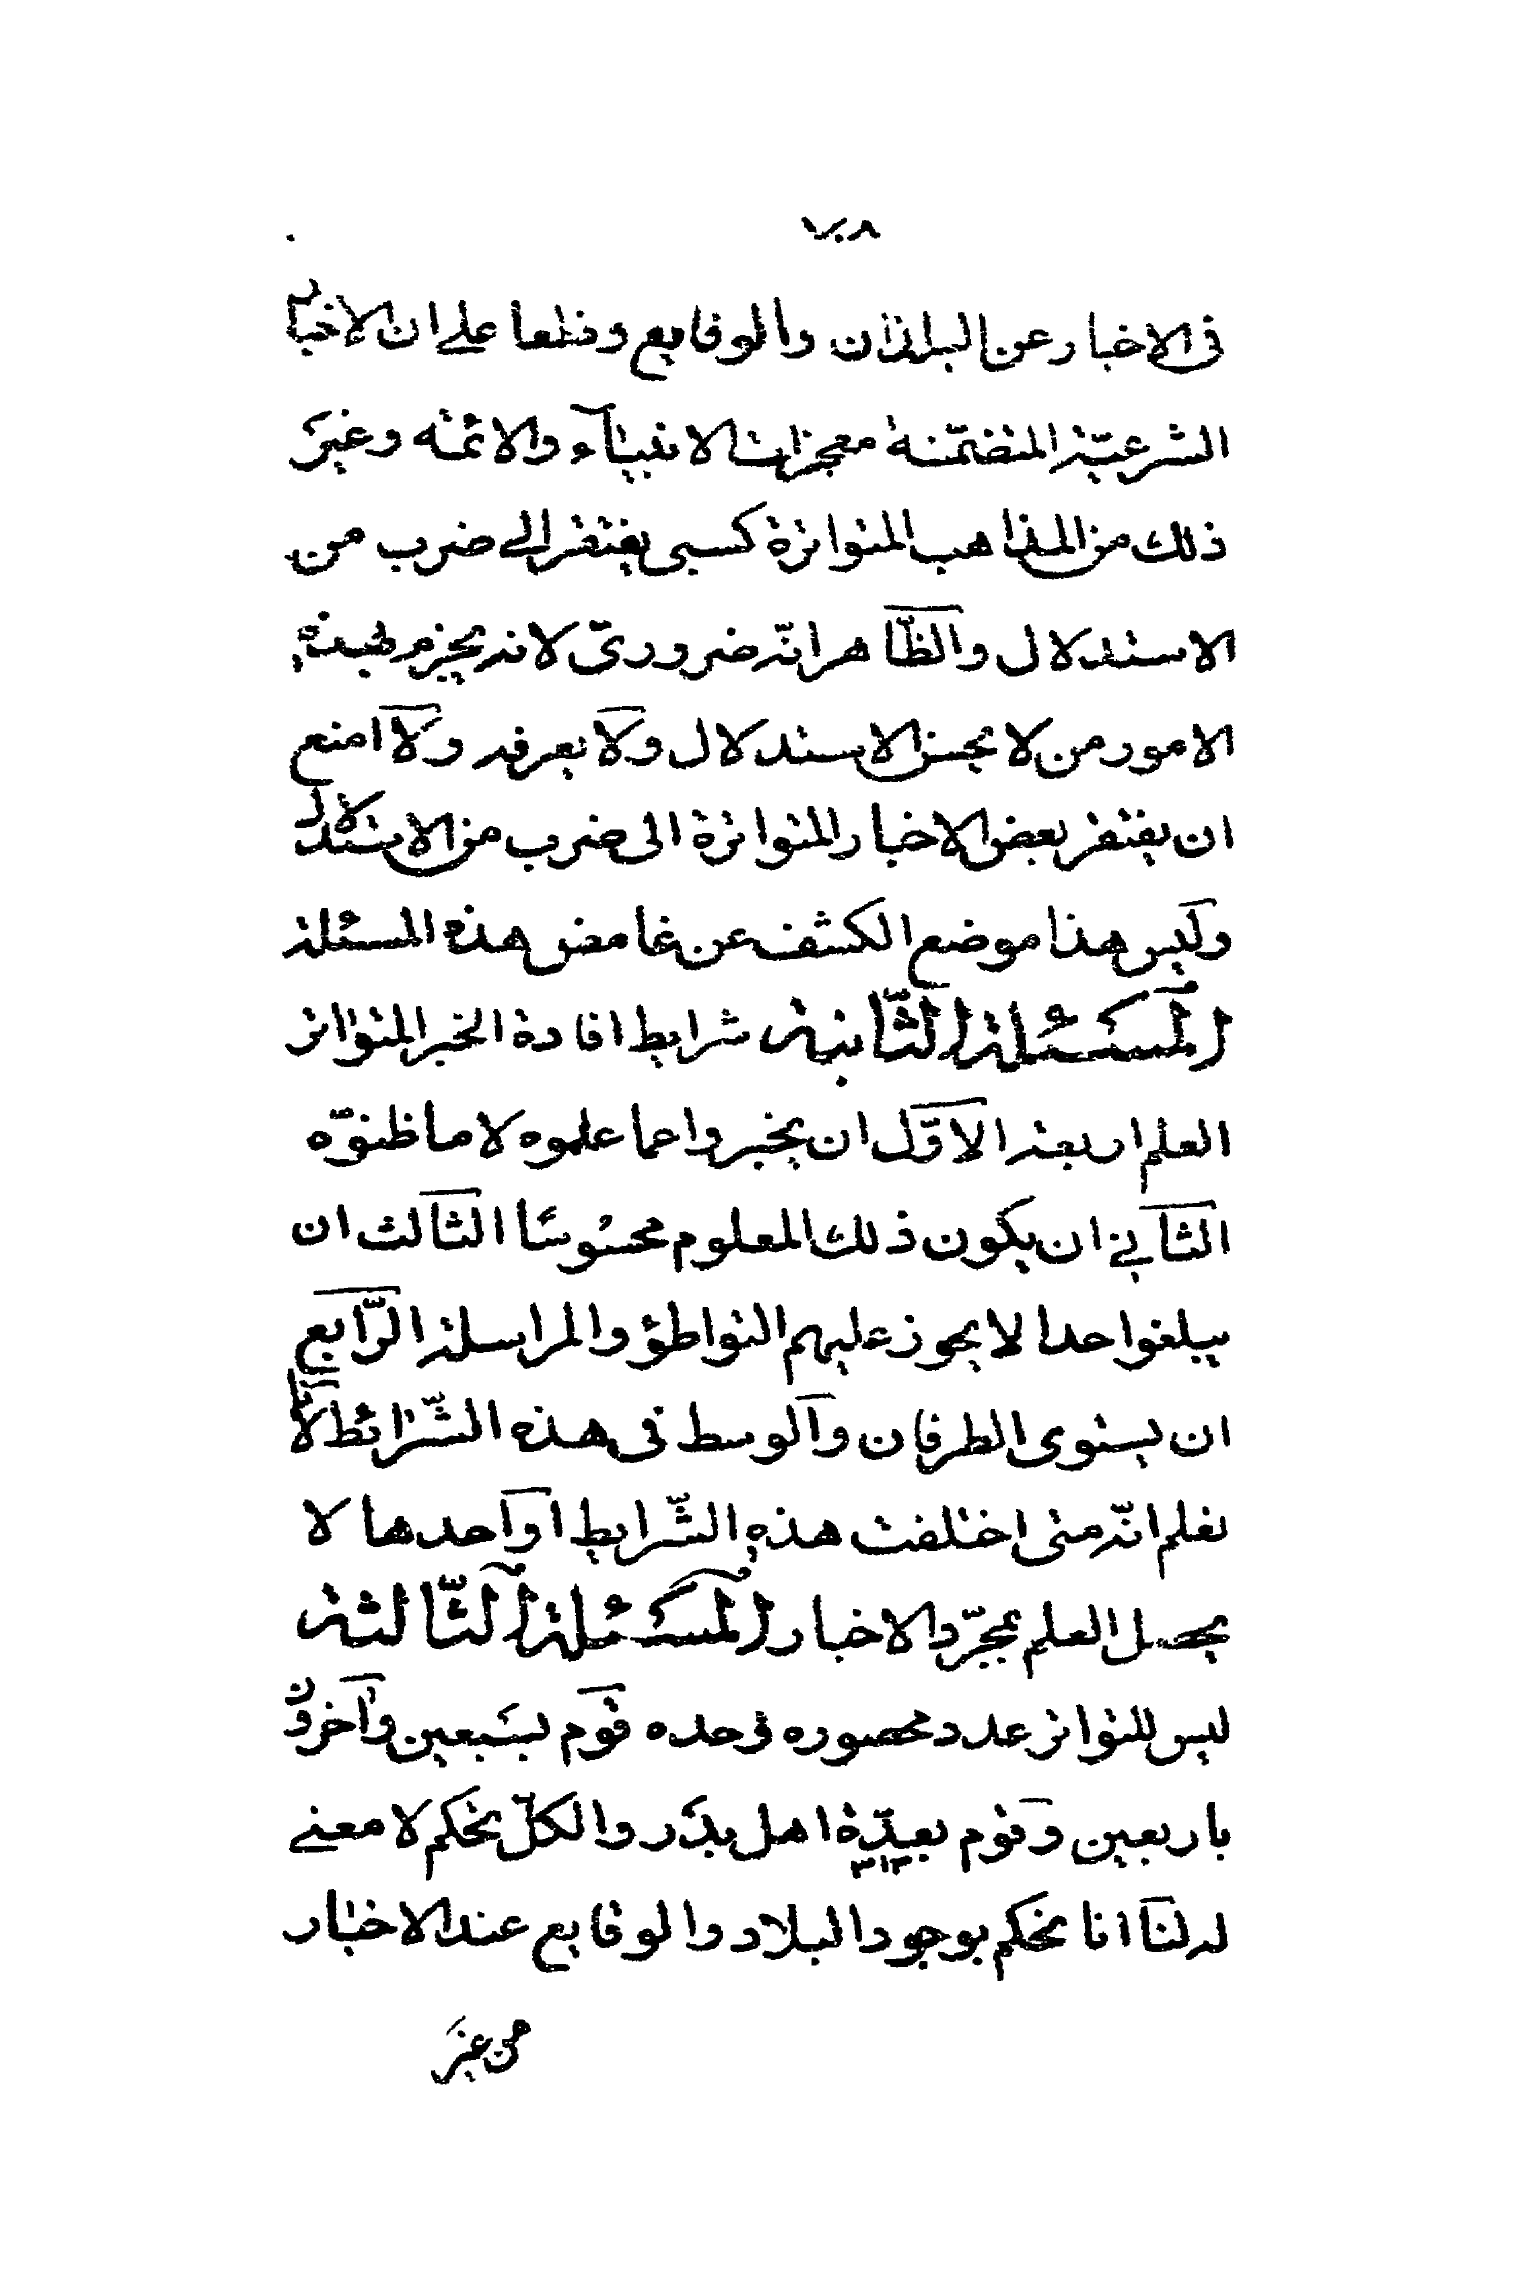 ٧٠٨
فى الاخبار عن البلدان والوقايع وقطعا على ان الاخبار
الشرعيّة المتضمّنة معجزات الانبياء والائمة وغير
ذلك من المذاهب المتواترة كسبى يفتقر الى ضرب من
الاستدلال والظّاهر انّه ضرورىّ لانه يجزم بهذه
الامور من لا يحسن الاستدلال ولا يعرفه ولا امنع
ان يفتقر بعض الاخبار المتواترة الى ضرب من الاستدلال
وليس هذا موضع الكشف عن غامض هذه المسئلة
المسئلة الثّانية شرايط افادة الخبر المتواتر
العلم اربعة الاوّل ان يخبروا عما علموه لا ما ظنوّه
الثانى ان يكون ذلك المعلوم محسُوسًا الثالث ان
يبلغوا حدا لا يجوز عليهم التواطؤ والمراسلة الرّابع
ان يستوى الطرفان والوسط فى هذه الشّرائط لانّا
نعلم انّه متى اختلفت هذه الشّرايط او احدها لا
يحصل العلم بمجرّد الاخبار المسئلة الثّالثة
ليس للتواتر عدد محصوره فى حده قوم بسَبعين وآخرون
باربعين وقوم بعدّة اهل بدَر والكلّ تحكم لا معنى
٣١٣
له لنا انا نحكم بوجود البلاد والوقايع عند الاخبار
من غير